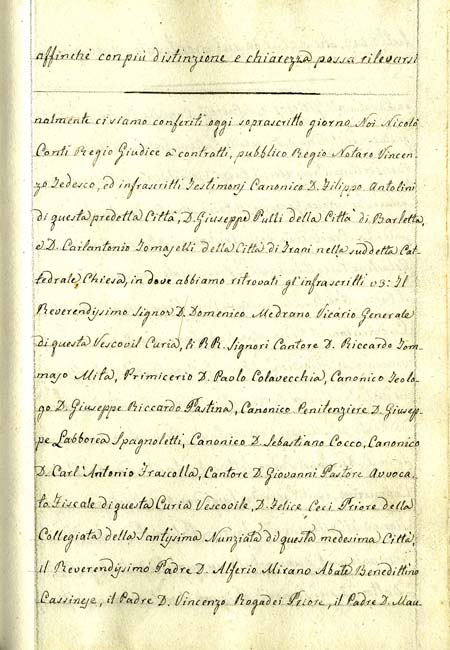 affinchè con più distinzione e chiarezza possa rilevarsi
nalmente ci siamo conferiti oggi soprascritto giorno Noi Nicolò
Conti Regio Giudice a contratti, pubblico Regio Notaro Vincen-
zo Tedesco, ed infrascritti Testimonj Canonico D. Filippo Antolini
di questa predetta Città, D. Giuseppe Pulli della Città di Barletta,
e D. Carlantonio Tomaselli della Città di Trani nella suddetta Cat-
tedrale Chiesa, in dove abbiamo ritrovati gl'infrascritti vz: Il
Reverendissimo Signor D. Domenico Medrano Vicario Generale
di questa Vescovil Curia, li RR. Signori Cantore D. Riccardo Tom-
maso Mita, Primicerio D. Paolo Colavecchia, Canonico Teolo-
go D. Giuseppe Riccardo Pastina, Canonico Penitenziere D. Giusep-
pe Labborea Spagnoletti, Canonico D. Sebastiano Cocco, Canonico
D. Carl'Antonio Frascolla, Cantore D. Giovanni Pastore Avvoca-
to Fiscale di questa Curia Vescovile, D. Felice Ceci Priore della
Collegiata della Santissima Nunziata di questa medesima Città,
il Reverendissimo Padre D. Alferio Mirano Abate Benedittino
Cassinese, il Padre D. Vincenzo Rogadei Priore, il Padre D. Mau-